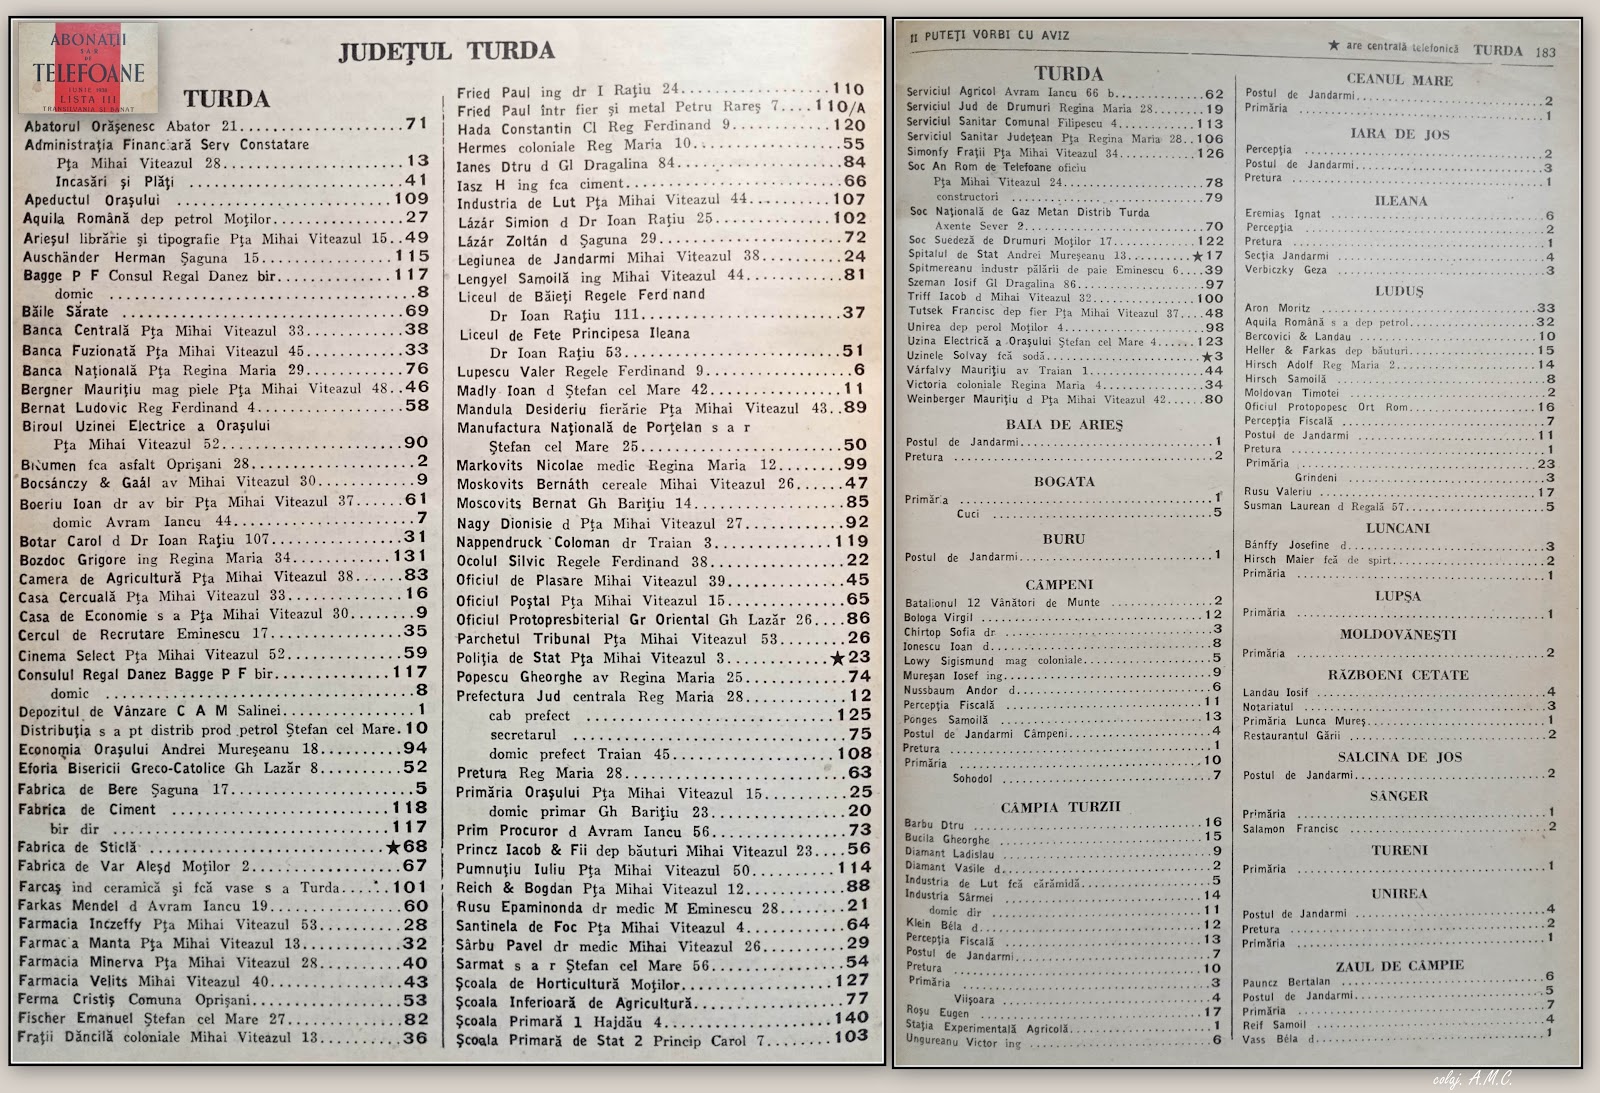 ABONAȚII
S A R
DE
TELEFOANE
IUNIE 1938
LISTA III
TRANSILVANIA ȘI BANAT
JUDEȚUL TURDA
TURDA
Abatorul Orășenesc Abator 21 71
Administrația Financiară Serv Constatare
Pța Mihai Viteazul 28 13
Incasări și Plăți 41
Apeductul Orașului 109
Aquila Română dep petrol Moților 27
Arieșul librărie și tipografie Pța Mihai Viteazul 15 49
Auschänder Herman Șaguna 15 115
Bagge P F Consul Regal Danez bir 117
domic 8
Băile Sărate 69
Banca Centrală Pța Mihai Viteazul 33 38
Banca Fuzionată Pța Mihai Viteazul 45 33
Banca Națională Pța Regina Maria 29 76
Bergner Maurițiu mag piele Pța Mihai Viteazul 48 46
Bernat Ludovic Reg Ferdinand 4 58
Biroul Uzinei Electrice a Orașului
Pța Mihai Viteazul 52 90
Bitumen fca asfalt Oprișani 28 2
Bocsánczy & Gaál av Mihai Viteazul 30 9
Boeriu Ioan dr av bir Pța Mihai Viteazul 37 61
domic Avram Iancu 44 7
Botar Carol d Dr Ioan Rațiu 107 31
Bozdoc Grigore ing Regina Maria 34 131
Camera de Agricultură Pța Mihai Viteazul 38 83
Casa Cercuală Pța Mihai Viteazul 33 16
Casa de Economie s a Pța Mihai Viteazul 30 9
Cercul de Recrutare Eminescu 17 35
Cinema Select Pța Mihai Viteazul 52 59
Consulul Regal Danez Bagge P F bir 117
domic 8
Depozitul de Vânzare C A M Salinei 1
Distribuția s a pt distrib prod petrol Ștefan cel Mare 10
Economia Orașului Andrei Mureșeanu 18 94
Eforia Bisericii Greco-Catolice Gh Lazăr 8 52
Fabrica de Bere Șaguna 17 5
Fabrica de Ciment 118
bir dir 117
Fabrica de Sticlă ★68
Fabrica de Var Aleșd Moților 2 67
Farcaș ind ceramică și fcă vase s a Turda 101
Farkas Mendel d Avram Iancu 19 60
Farmacia Inczeffy Pța Mihai Viteazul 53 28
Farmacia Manta Pța Mihai Viteazul 13 32
Farmacia Minerva Pța Mihai Viteazul 28 40
Farmacia Velits Mihai Viteazul 40 43
Ferma Cristiș Comuna Oprișani 53
Fischer Emanuel Ștefan cel Mare 27 82
Frații Dăncilă coloniale Mihai Viteazul 13 36
Fried Paul ing dr I Rațiu 24 110
Fried Paul într fier și metal Petru Rareș 7 110/A
Hada Constantin Cl Reg Ferdinand 9 120
Hermes coloniale Reg Maria 10 55
Ianes Dtru d Gl Dragalina 84 84
Iasz H ing fca ciment 66
Industria de Lut Pța Mihai Viteazul 44 107
Lázár Simion d Dr Ioan Rațiu 25 102
Lázár Zoltán d Șaguna 29 72
Legiunea de Jandarmi Mihai Viteazul 38 24
Lengyel Samoilă ing Mihai Viteazul 44 81
Liceul de Băieți Regele Ferdinand
Dr Ioan Rațiu 111 37
Liceul de Fete Principesa Ileana
Dr Ioan Rațiu 53 51
Lupescu Valer Regele Ferdinand 9 6
Madly Ioan d Ștefan cel Mare 42 11
Mandula Desideriu fierărie Pța Mihai Viteazul 43 89
Manufactura Națională de Porțelan s a r
Ștefan cel Mare 25 50
Markovits Nicolae medic Regina Maria 12 99
Moskovits Bernáth cereale Mihai Viteazul 26 47
Moscovits Bernat Gh Barițiu 14 85
Nagy Dionisie d Pța Mihai Viteazul 27 92
Nappendruck Coloman dr Traian 3 119
Ocolul Silvic Regele Ferdinand 38 22
Oficiul de Plasare Mihai Viteazul 39 45
Oficiul Poștal Pța Mihai Viteazul 15 65
Oficiul Protopresbiterial Gr Oriental Gh Lazăr 26 86
Parchetul Tribunal Pța Mihai Viteazul 53 26
Poliția de Stat Pța Mihai Viteazul 3 ★23
Popescu Gheorghe av Regina Maria 25 74
Prefectura Jud centrala Reg Maria 28 12
cab prefect 125
secretarul 75
domic prefect Traian 45 108
Pretura Reg Maria 28 63
Primăria Orașului Pța Mihai Viteazul 15 25
domic primar Gh Barițiu 23 20
Prim Procuror d Avram Iancu 56 73
Princz Iacob & Fii dep băuturi Mihai Viteazul 23 56
Pumnuțiu Iuliu Pța Mihai Viteazul 50 114
Reich & Bogdan Pța Mihai Viteazul 12 88
Rusu Epaminonda dr medic M Eminescu 28 21
Santinela de Foc Pța Mihai Viteazul 4 64
Sârbu Pavel dr medic Mihai Viteazul 26 29
Sarmat s a r Ștefan cel Mare 56 54
Școala de Horticultură Moților 127
Școala Inferioară de Agricultură 77
Școala Primară 1 Hajdău 4 140
Școala Primară de Stat 2 Princip Carol 7 103
II PUTEȚI VORBI CU AVIZ
★ are centrală telefonică TURDA 183
TURDA
Serviciul Agricol Avram Iancu 66 b 62
Serviciul Jud de Drumuri Regina Maria 28 19
Serviciul Sanitar Comunal Filipescu 4 113
Serviciul Sanitar Județean Pța Regina Maria 28 106
Simonfy Frații Pța Mihai Viteazul 34 126
Soc An Rom de Telefoane oficiu
Pța Mihai Viteazul 24 78
constructori 79
Soc Națională de Gaz Metan Distrib Turda
Axente Sever 2 70
Soc Suedeză de Drumuri Moților 17 122
Spitalul de Stat Andrei Mureșeanu 13 ★17
Spitmereanu industr pălării de paie Eminescu 6 39
Szeman Iosif Gl Dragalina 86 97
Triff Iacob d Mihai Viteazul 32 100
Tutsek Francisc dep fier Pța Mihai Viteazul 37 48
Unirea dep perol Moților 4 98
Uzina Electrică a Orașului Ștefan cel Mare 4 123
Uzinele Solvay fcă sodă ★3
Várfalvy Maurițiu av Traian 1 44
Victoria coloniale Regina Maria 4 34
Weinberger Maurițiu d Pța Mihai Viteazul 42 80
BAIA DE ARIEȘ
Postul de Jandarmi 1
Pretura 2
BOGATA
Primăria 1
Cuci 5
BURU
Postul de Jandarmi 1
CÂMPENI
Batalionul 12 Vânători de Munte 2
Bologa Virgil 12
Chirtop Sofia dr 3
Ionescu Ioan d 8
Lowy Sigismund mag coloniale 5
Mureșan Iosef ing 9
Nussbaum Andor d 6
Percepția Fiscală 11
Ponges Samoilă 13
Postul de Jandarmi Câmpeni 4
Pretura 1
Primăria 10
Sohodol 7
CÂMPIA TURZII
Barbu Dtru 16
Bucila Gheorghe 15
Diamant Ladislau 9
Diamant Vasile d 2
Industria de Lut fcă cărămidă 5
Industria Sârmei 14
domic dir 11
Klein Béla d 12
Percepția Fiscală 13
Postul de Jandarmi 7
Pretura 10
Primăria 3
Viișoara 4
Roșu Eugen 17
Stația Experimentală Agricolă 1
Ungureanu Victor ing 6
CEANUL MARE
Postul de Jandarmi 2
Primăria 1
IARA DE JOS
Percepția 2
Postul de Jandarmi 3
Pretura 1
ILEANA
Eremias Ignat 6
Percepția 2
Pretura 1
Secția Jandarmi 4
Verbiczky Geza 3
LUDUȘ
Aron Moritz 33
Aquila Română s a dep petrol 32
Bercovici & Landau 10
Heller & Farkas dep băuturi 15
Hirsch Adolf Reg Maria 2 14
Hirsch Samoilă 8
Moldovan Timotei 2
Oficiul Protopopesc Ort Rom 16
Percepția Fiscală 7
Postul de Jandarmi 11
Pretura 1
Primăria 23
Grindeni 3
Rusu Valeriu 17
Susman Laurean d Regală 57 5
LUNCANI
Bánffy Josefine d 3
Hirsch Maier fcă de spirt 2
Primăria 1
LUPȘA
Primăria 1
MOLDOVĂNEȘTI
Primăria 2
RĂZBOENI CETATE
Landau Iosif 4
Notariatul 3
Primăria Lunca Mureș 1
Restaurantul Gării 2
SALCINA DE JOS
Postul de Jandarmi 2
SÂNGER
Primăria 1
Salamon Francisc 2
TURENI
Primăria 1
UNIREA
Postul de Jandarmi 4
Pretura 2
Primăria 1
ZAUL DE CÂMPIE
Pauncz Bertalan 6
Postul de Jandarmi 5
Primăria 7
Reif Samoil 4
Vass Béla d 1
colaj. A.M.C.